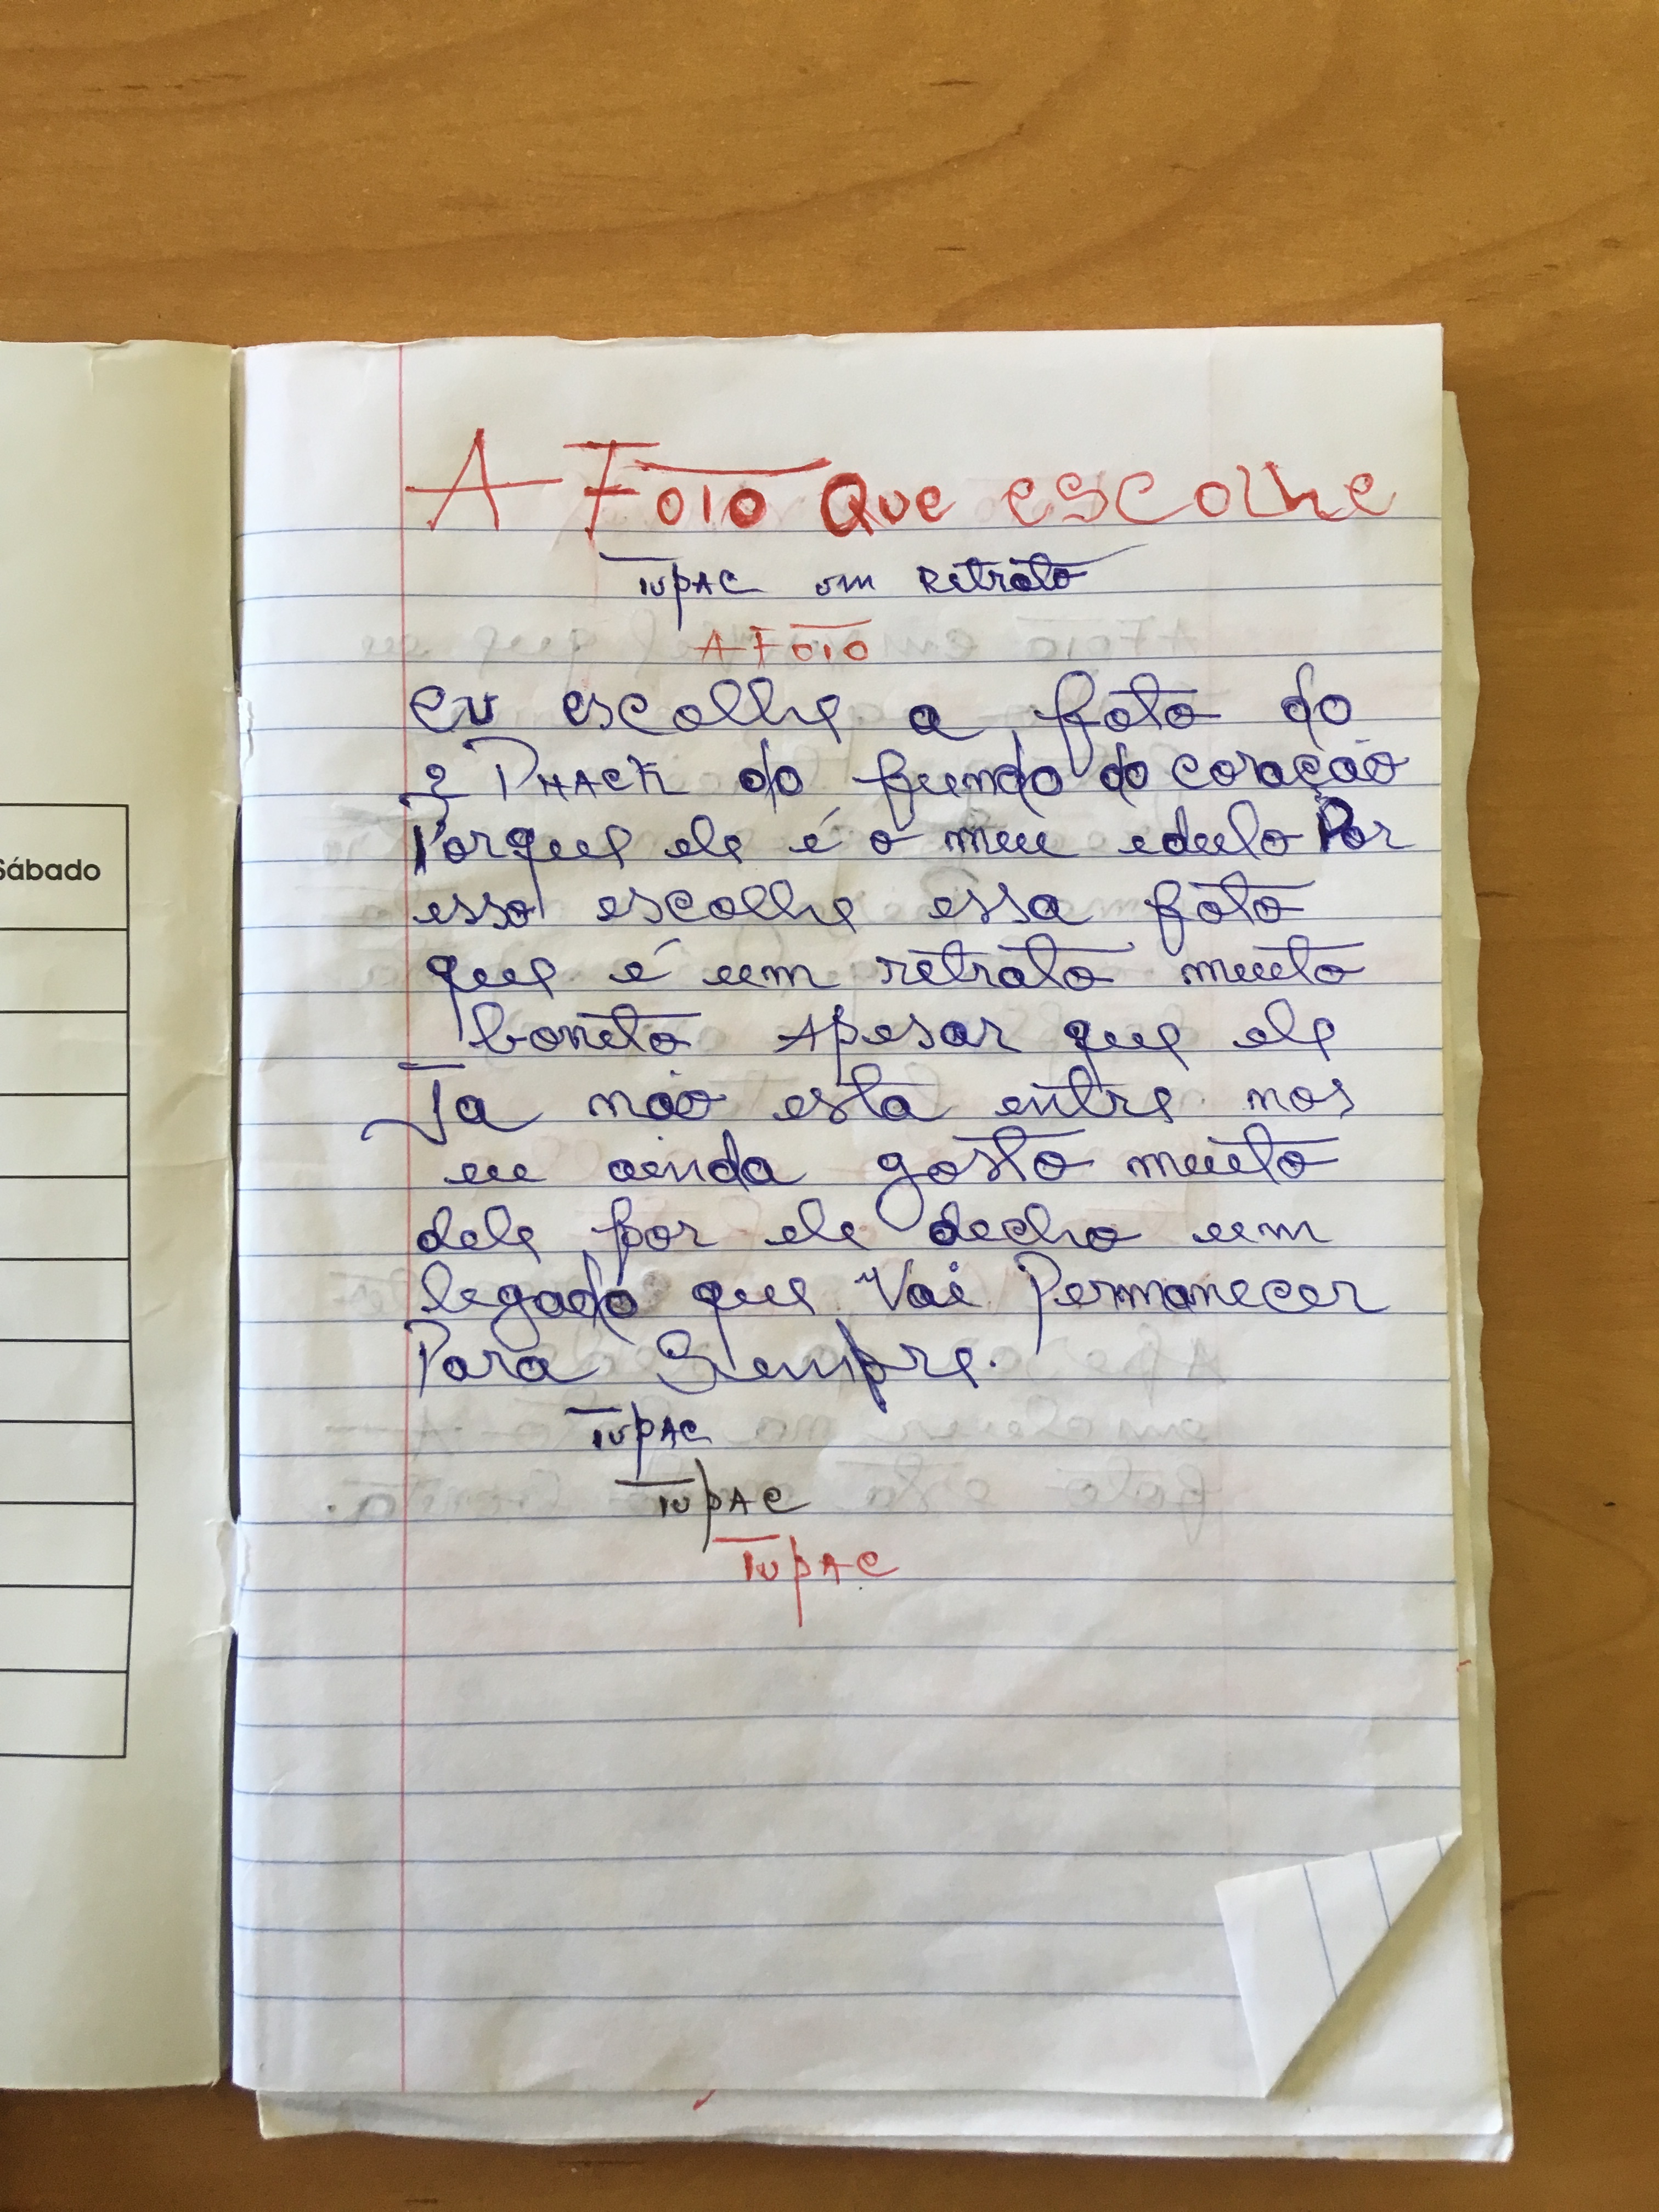 Sábado
A Foto Que escolhe
Tupac um Retrato
A Foto
eu escolhe a foto do
2 PHACK do fundo do coração
Porque ele é o meu idulo Por
isso escolhe essa foto
que é um retrato muito
bonito Apesar que ele
Ja não esta entre nos
eu ainda gosto muito
dele por ele decho um
legado que Vai Permanecer
Para Sempre.
Tupac
Tupac
Tupac